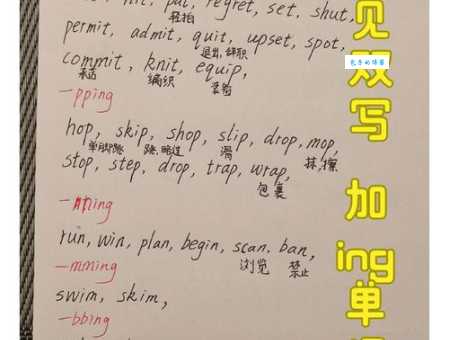 put, regret, set, shut,
轻拍
permit, admit, quit, upset, spot,
退出, 辞职
commit, knit, equip,
承诺 编织 装备
-pping
hop, skip, shop, slip, drop, mop,
单脚跳 跳, 略过 滑 抹, 擦
stop, step, drop, trap, wrap,
包裹
-nning
run, win, plan, begin, scan, ban,
浏览 禁止
-mming
swim, skim,
-bbing
见双写加ing单